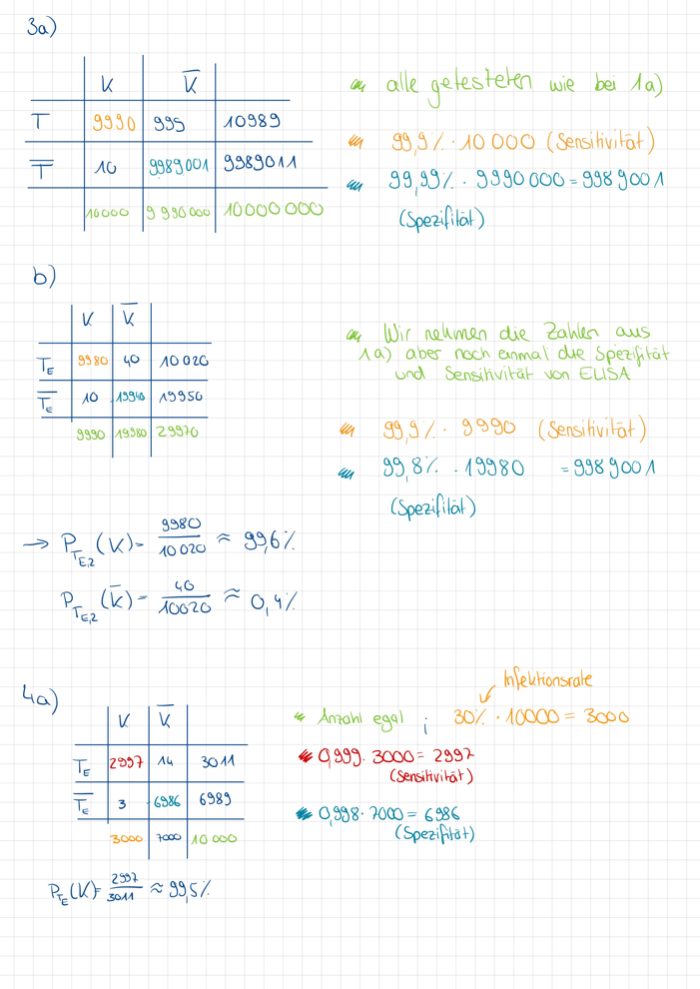 3a)
K K̅
T 9990 995 10989
T̅ 10 9989001 9989011
10000 9990000 10000000
alle getesteten wie bei 1a)
99,9% · 10000 (Sensitivität)
99,99% · 9990000 = 9989001
(Spezifität)
b)
K K̅
T_E 9980 40 10020
T̅_E 10 19940 19950
9990 19980 29970
Wir nehmen die Zahlen aus
1a) aber noch einmal die Spezifität
und Sensitivität von ELISA
99,9% · 9990 (Sensitivität)
99,8% · 19980 = 9989001
(Spezifität)
→ P_{T_{E,2}}(K) = 9980/10020 ≈ 99,6%
P_{T_{E,2}}(K̅) = 40/10020 ≈ 0,4%
4a)
K K̅
T_E 2997 14 3011
T̅_E 3 6986 6989
3000 7000 10000
Infektionsrate
Anzahl egal ; 30% · 10000 = 3000
0,999 · 3000 = 2997
(Sensitivität)
0,998 · 7000 = 6986
(Spezifität)
P_{T_E}(K) = 2997/3011 ≈ 99,5%